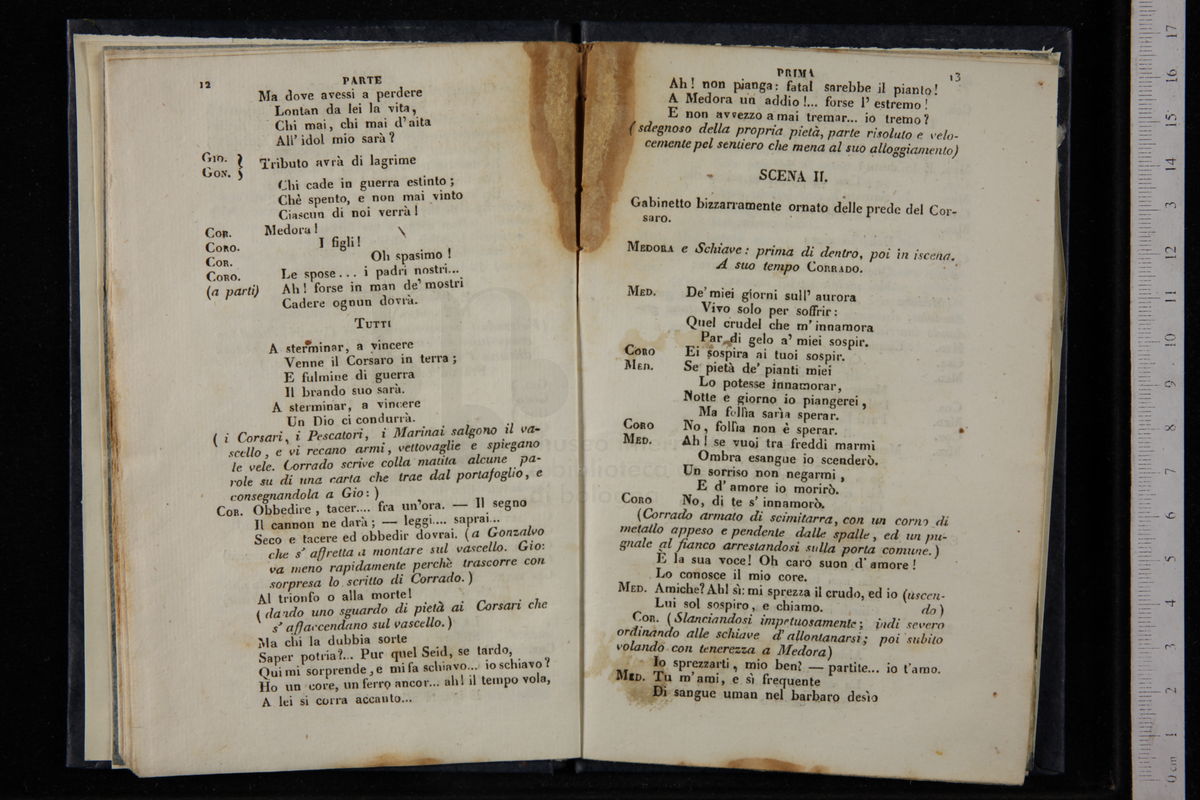 12
PARTE
Ma dove avessi a perdere
Lontan da lei la vita,
Chi mai, chi mai d'aita
All' idol mio sarà?
GIO. }
GON. }
Tributo avrà di lagrime
Chi cade in guerra estinto;
Chè spento, e non mai vinto
Ciascun di noi verrà!
COR. Medora!
CORO. I figli!
COR. Oh spasimo!
CORO. Le spose... i padri nostri...
(a parti) Ah! forse in man de' mostri
Cadere ognun dovrà.
TUTTI
A sterminar, a vincere
Venne il Corsaro in terra;
E fulmine di guerra
Il brando suo sarà.
A sterminar, a vincere
Un Dio ci condurrà.
( i Corsari, i Pescatori, i Marinai salgono il va-
scello, e vi recano armi, vettovaglie e spiegano
le vele. Corrado scrive colla matita alcune pa-
role su di una carta che trae dal portafoglio, e
consegnandola a Gio: )
COR. Obbedire, tacer.... fra un'ora. — Il segno
Il cannon ne darà; — leggi.... saprai...
Seco e tacere ed obbedir dovrai. (a Gonzalvo
che s' affretta a montare sul vascello. Gio:
va meno rapidamente perchè trascorre con
sorpresa lo scritto di Corrado. )
Al trionfo o alla morte!
( dando uno sguardo di pietà ai Corsari che
s' affaccendano sul vascello. )
Ma chi la dubbia sorte
Saper potria?... Pur quel Seid, se tardo,
Qui mi sorprende, e mi fa schiavo... io schiavo?
Ho un core, un ferro ancor... ah! il tempo vola,
A lei si corra accanto...
PRIMA
13
Ah! non pianga: fatal sarebbe il pianto!
A Medora un addio!... forse l' estremo!
E non avvezzo a mai tremar... io tremo?
( sdegnoso della propria pietà, parte risoluto e velo-
cemente pel sentiero che mena al suo alloggiamento)
SCENA II.
Gabinetto bizzarramente ornato delle prede del Cor-
saro.
MEDORA e Schiave: prima di dentro, poi in iscena.
A suo tempo CORRADO.
MED. De' miei giorni sull' aurora
Vivo solo per soffrir:
Quel crudel che m' innamora
Par di gelo a' miei sospir.
CORO Ei sospira ai tuoi sospir.
MED. Se pietà de' pianti miei
Lo potesse innamorar,
Notte e giorno io piangerei,
Ma follia saria sperar.
CORO No, follia non è sperar.
MED. Ah! se vuoi tra freddi marmi
Ombra esangue io scenderò.
Un sorriso non negarmi,
E d' amore io morirò.
CORO No, di te s' innamorò.
(Corrado armato di scimitarra, con un corno di
metallo appeso e pendente dalle spalle, ed un pu-
gnale al fianco arrestandosi sulla porta comune.)
È la sua voce! Oh caro suon d' amore!
Lo conosce il mio core.
MED. Amiche? Ah! sì: mi sprezza il crudo, ed io (uscen-
Lui sol sospiro, e chiamo. do)
COR. (Slanciandosi impetuosamente; indi severo
ordinando alle schiave d' allontanarsi; poi subito
volando con tenerezza a Medora)
Io sprezzarti, mio ben? — partite... io t'amo.
MED. Tu m' ami, e sì frequente
Di sangue uman nel barbaro desìo